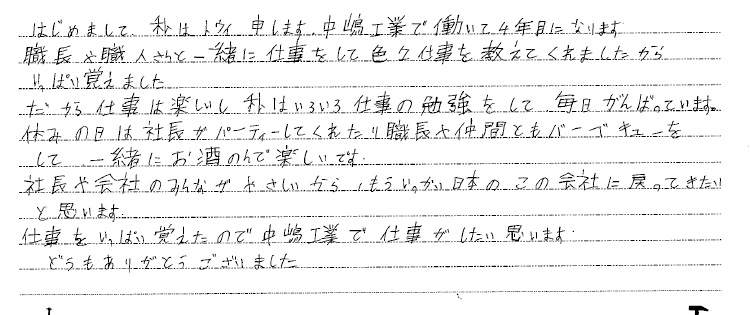 はじめまして、私はトウイ申します。中嶋工業で働いて4年目になります
職長や職人さんと一緒に仕事をして色々仕事を教えてくれましたから
いっぱい覚えました
だから仕事は楽しいし 私はいろいろ仕事の勉強をして 毎日がんばっています。
休みの日は社長がパーティーしてくれたり職長や仲間ともバーベキューを
して 一緒にお酒のんで楽しいです。
社長や会社のみんながやさしいから、もういっかい日本のこの会社に戻ってきたい
と思います。
仕事をいっぱい覚えたので中嶋工業で仕事がしたい思います。
どうもありがとうございました